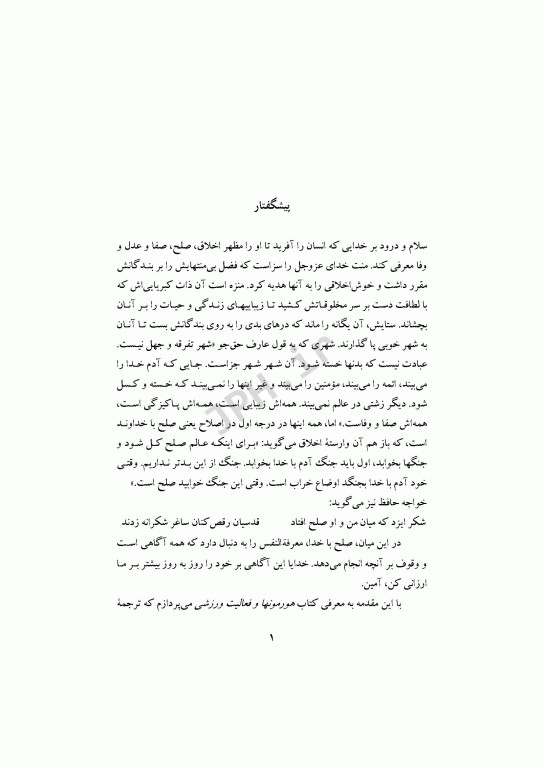 پیشگفتار
سلام و درود بر خدایی که انسان را آفرید تا او را مظهر اخلاق، صلح، صفا و عدل و
وفا معرفی کند. منت خدای عزوجل را سزاست که فضل بی‌منتهایش را بر بندگانش
مقرر داشت و خوش‌اخلاقی را به آنها هدیه کرد. منزه است آن ذات کبریایی‌اش که
با لطافت دست بر سر مخلوقاتش کشید تا زیباییهای زندگی و حیات را بر آنان
بچشاند. ستایش، آن یگانه را ماند که درهای بدی را به روی بندگانش بست تا آنان
به شهر خوبی پا گذارند. شهری که به قول عارف حق‌جو «شهر تفرقه و جهل نیست.
عبادت نیست که بدنها خسته شود. آن شهر شهر جزاست. جایی که آدم خدا را
می‌بیند، ائمه را می‌بیند، مؤمنین را می‌بیند و غیر اینها را نمی‌بیند که خسته و کسل
شود. دیگر زشتی در عالم نمی‌بیند. همه‌اش زیبایی است، همه‌اش پاکیزگی است،
همه‌اش صفا و وفاست.» اما، همه اینها در درجه اول در اصلاح یعنی صلح با خداوند
است، که باز هم آن وارستهٔ اخلاق می‌گوید: «برای اینکه عالم صلح کل شود و
جنگها بخوابد، اول باید جنگ آدم با خدا بخوابد. جنگ از این بدتر نداریم. وقتی
خود آدم با خدا بجنگد اوضاع خراب است. وقتی این جنگ خوابید صلح است.»
خواجه حافظ نیز می‌گوید:
شکر ایزد که میان من و او صلح افتاد قدسیان رقص‌کنان ساغر شکرانه زدند
در این میان، صلح با خدا، معرفةالنفس را به دنبال دارد که همه آگاهی است
و وقوف بر آنچه انجام می‌دهد. خدایا این آگاهی بر خود را روز به روز بیشتر بر ما
ارزانی کن، آمین.
با این مقدمه به معرفی کتاب هورمونها و فعالیت ورزشی می‌پردازم که ترجمهٔ
۱
JPH.ir